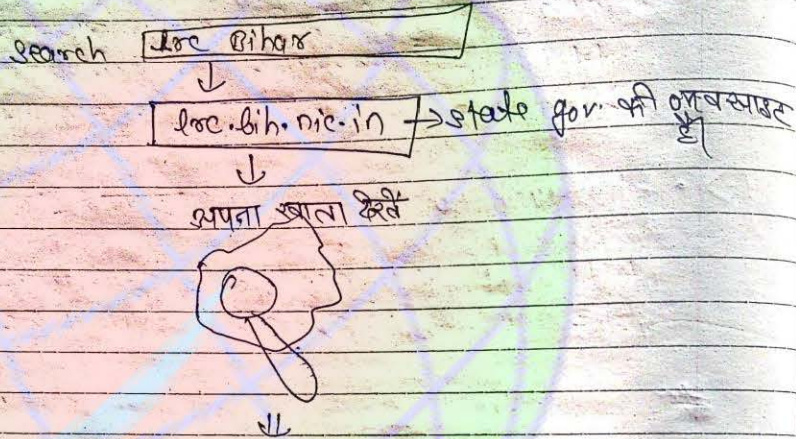 search lrc Bihar
lrc.bih.nic.in → state gov. की वेबसाइट
है।
अपना खाता देखें